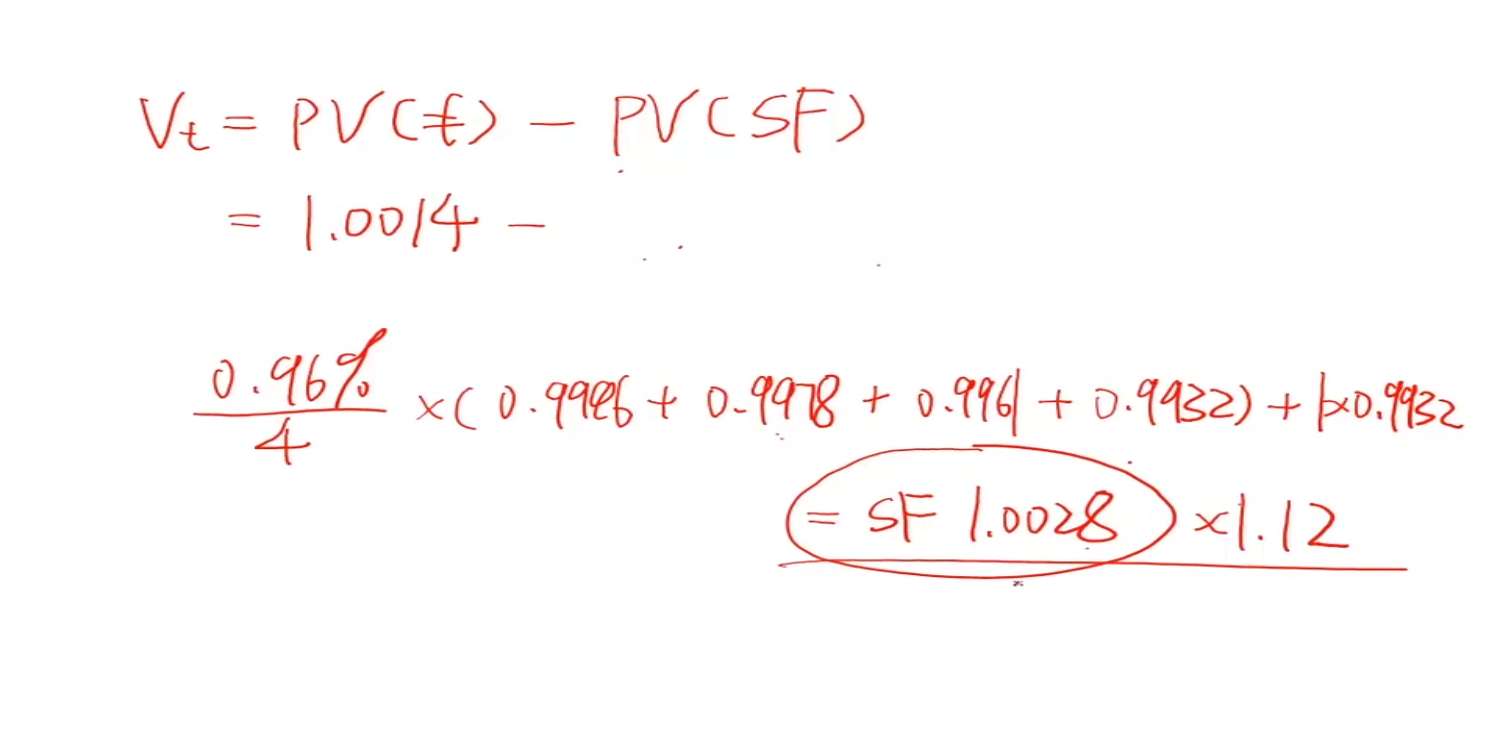 Vt = PV(£) - PV(SF)
= 1.0014 -
0.96%
4
×( + 0.9978 + 0.9961 + 0.9932) + 1×0.9932
= SF 1.0028 ×1.12